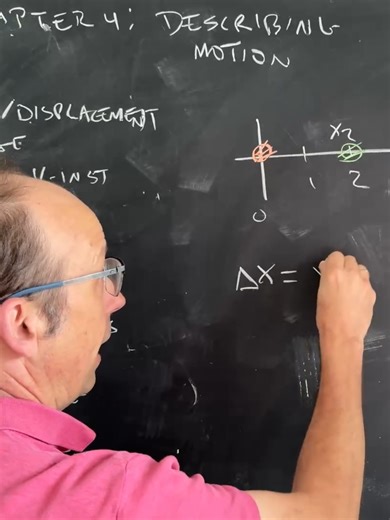 APTER 4: DESCRIBING
MOTION
/DISPLACEMENT
V-INST
X2
1 2
0
ΔX =